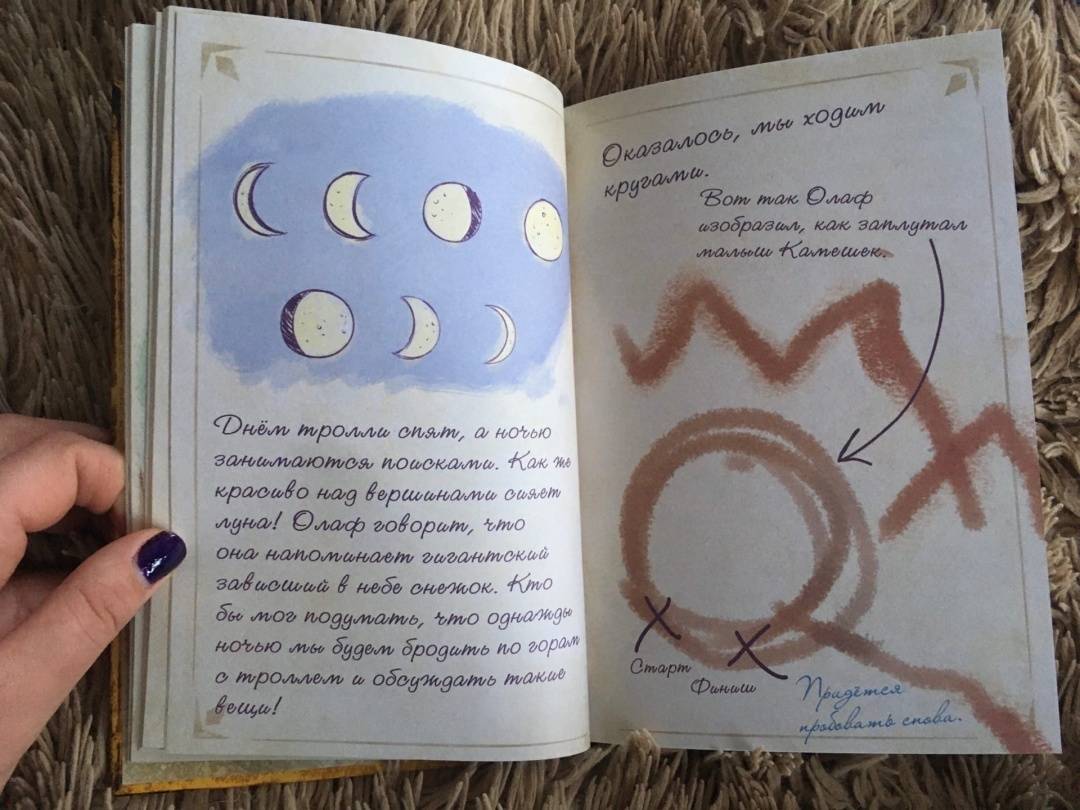 Днём тролли спят, а ночью
занимаются поисками. Как же
красиво над вершинами сияет
луна! Олаф говорит, что
она напоминает гигантский
зависший в небе снежок. Кто
бы мог подумать, что однажды
ночью мы будем бродить по горам
с троллем и обсуждать такие
вещи!
Оказалось, мы ходим
кругами.
Вот так Олаф
изобразил, как заплутал
малыш Камешек.
Старт
Финиш
Придётся
пробовать снова.